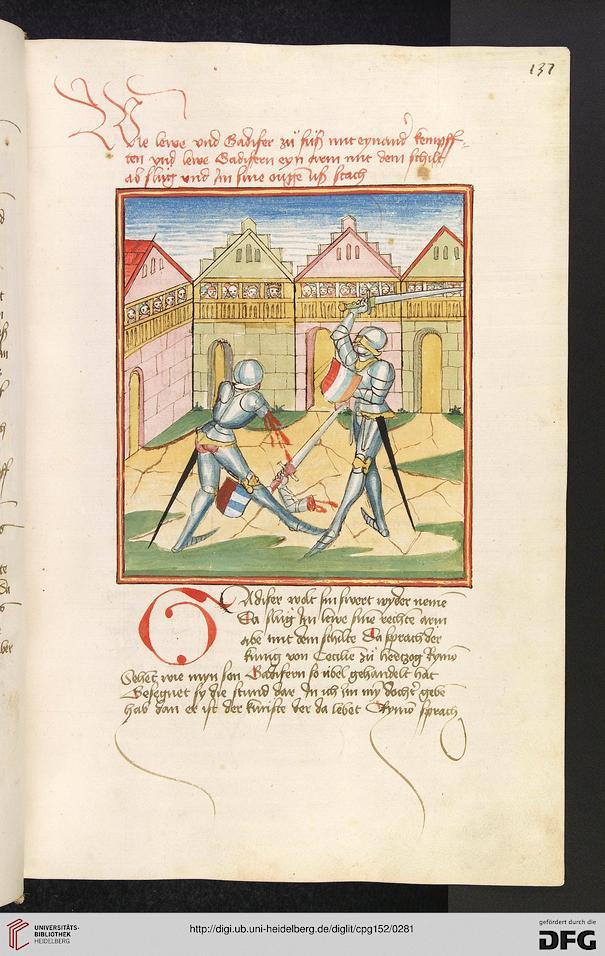 137
Wie lewe vnd Gadifer zu fuß mit eynand kempff=
ten vnd lewe Gadifern eyn arm mit dem schilt
ab slug vnd im sine ouge uß stach
Gadifer wolt sin swert wyder neme
Da slug im lewe sine rechte arm
abe mit dem schilte Da sprach der
kunig von Cecilie zu hertzog Rymo
Sehet wie myn son Gadifern so vbel gehandelt hat
Gesegnet sy die stund dar In ich im my docht gebe
hab dan er ist der kunste der da lebet Rymo sprach
UNIVERSITÄTS-
BIBLIOTHEK
HEIDELBERG
http://digi.ub.uni-heidelberg.de/diglit/cpg152/0281
gefördert durch die
DFG